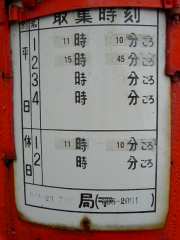 取集時刻
平日
1 11時 10分ごろ
2 15時 45分ごろ
3 時 分ごろ
4 時 分ごろ
休日
1 11時 10分ごろ
2 時 分ごろ
局(〒 -2001